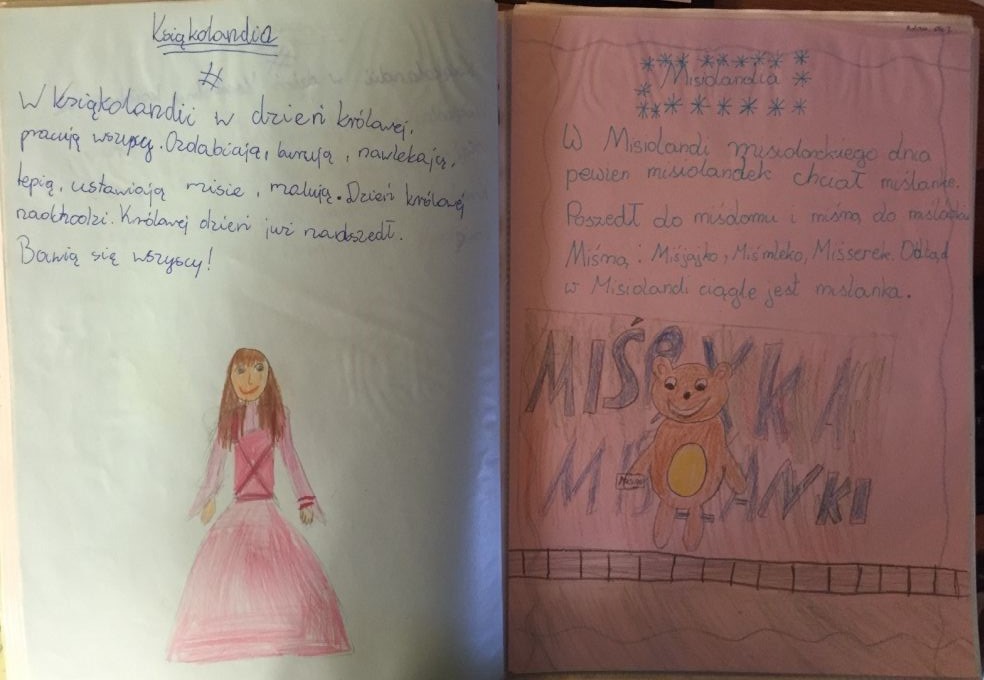 Książkolandia
#
W Książkolandii w dzień królowej,
pracują wszyscy. Ozdabiają, barują, nawlekają,
lepią, ustawiają misie, malują. Dzień królowej
nadchodzi. Królowej dzień już nadszedł.
Bawią się wszyscy!
Misiolandia
W Misiolandi misiolandzkiego dnia
pewien misiolandek chciał miślankę.
Poszedł do miśdomu i miśną do
Miśmą i Miśjajko, Miśmleko, Misserek. Odtąd
w Misiolandi ciągle jest miślanka.
KI